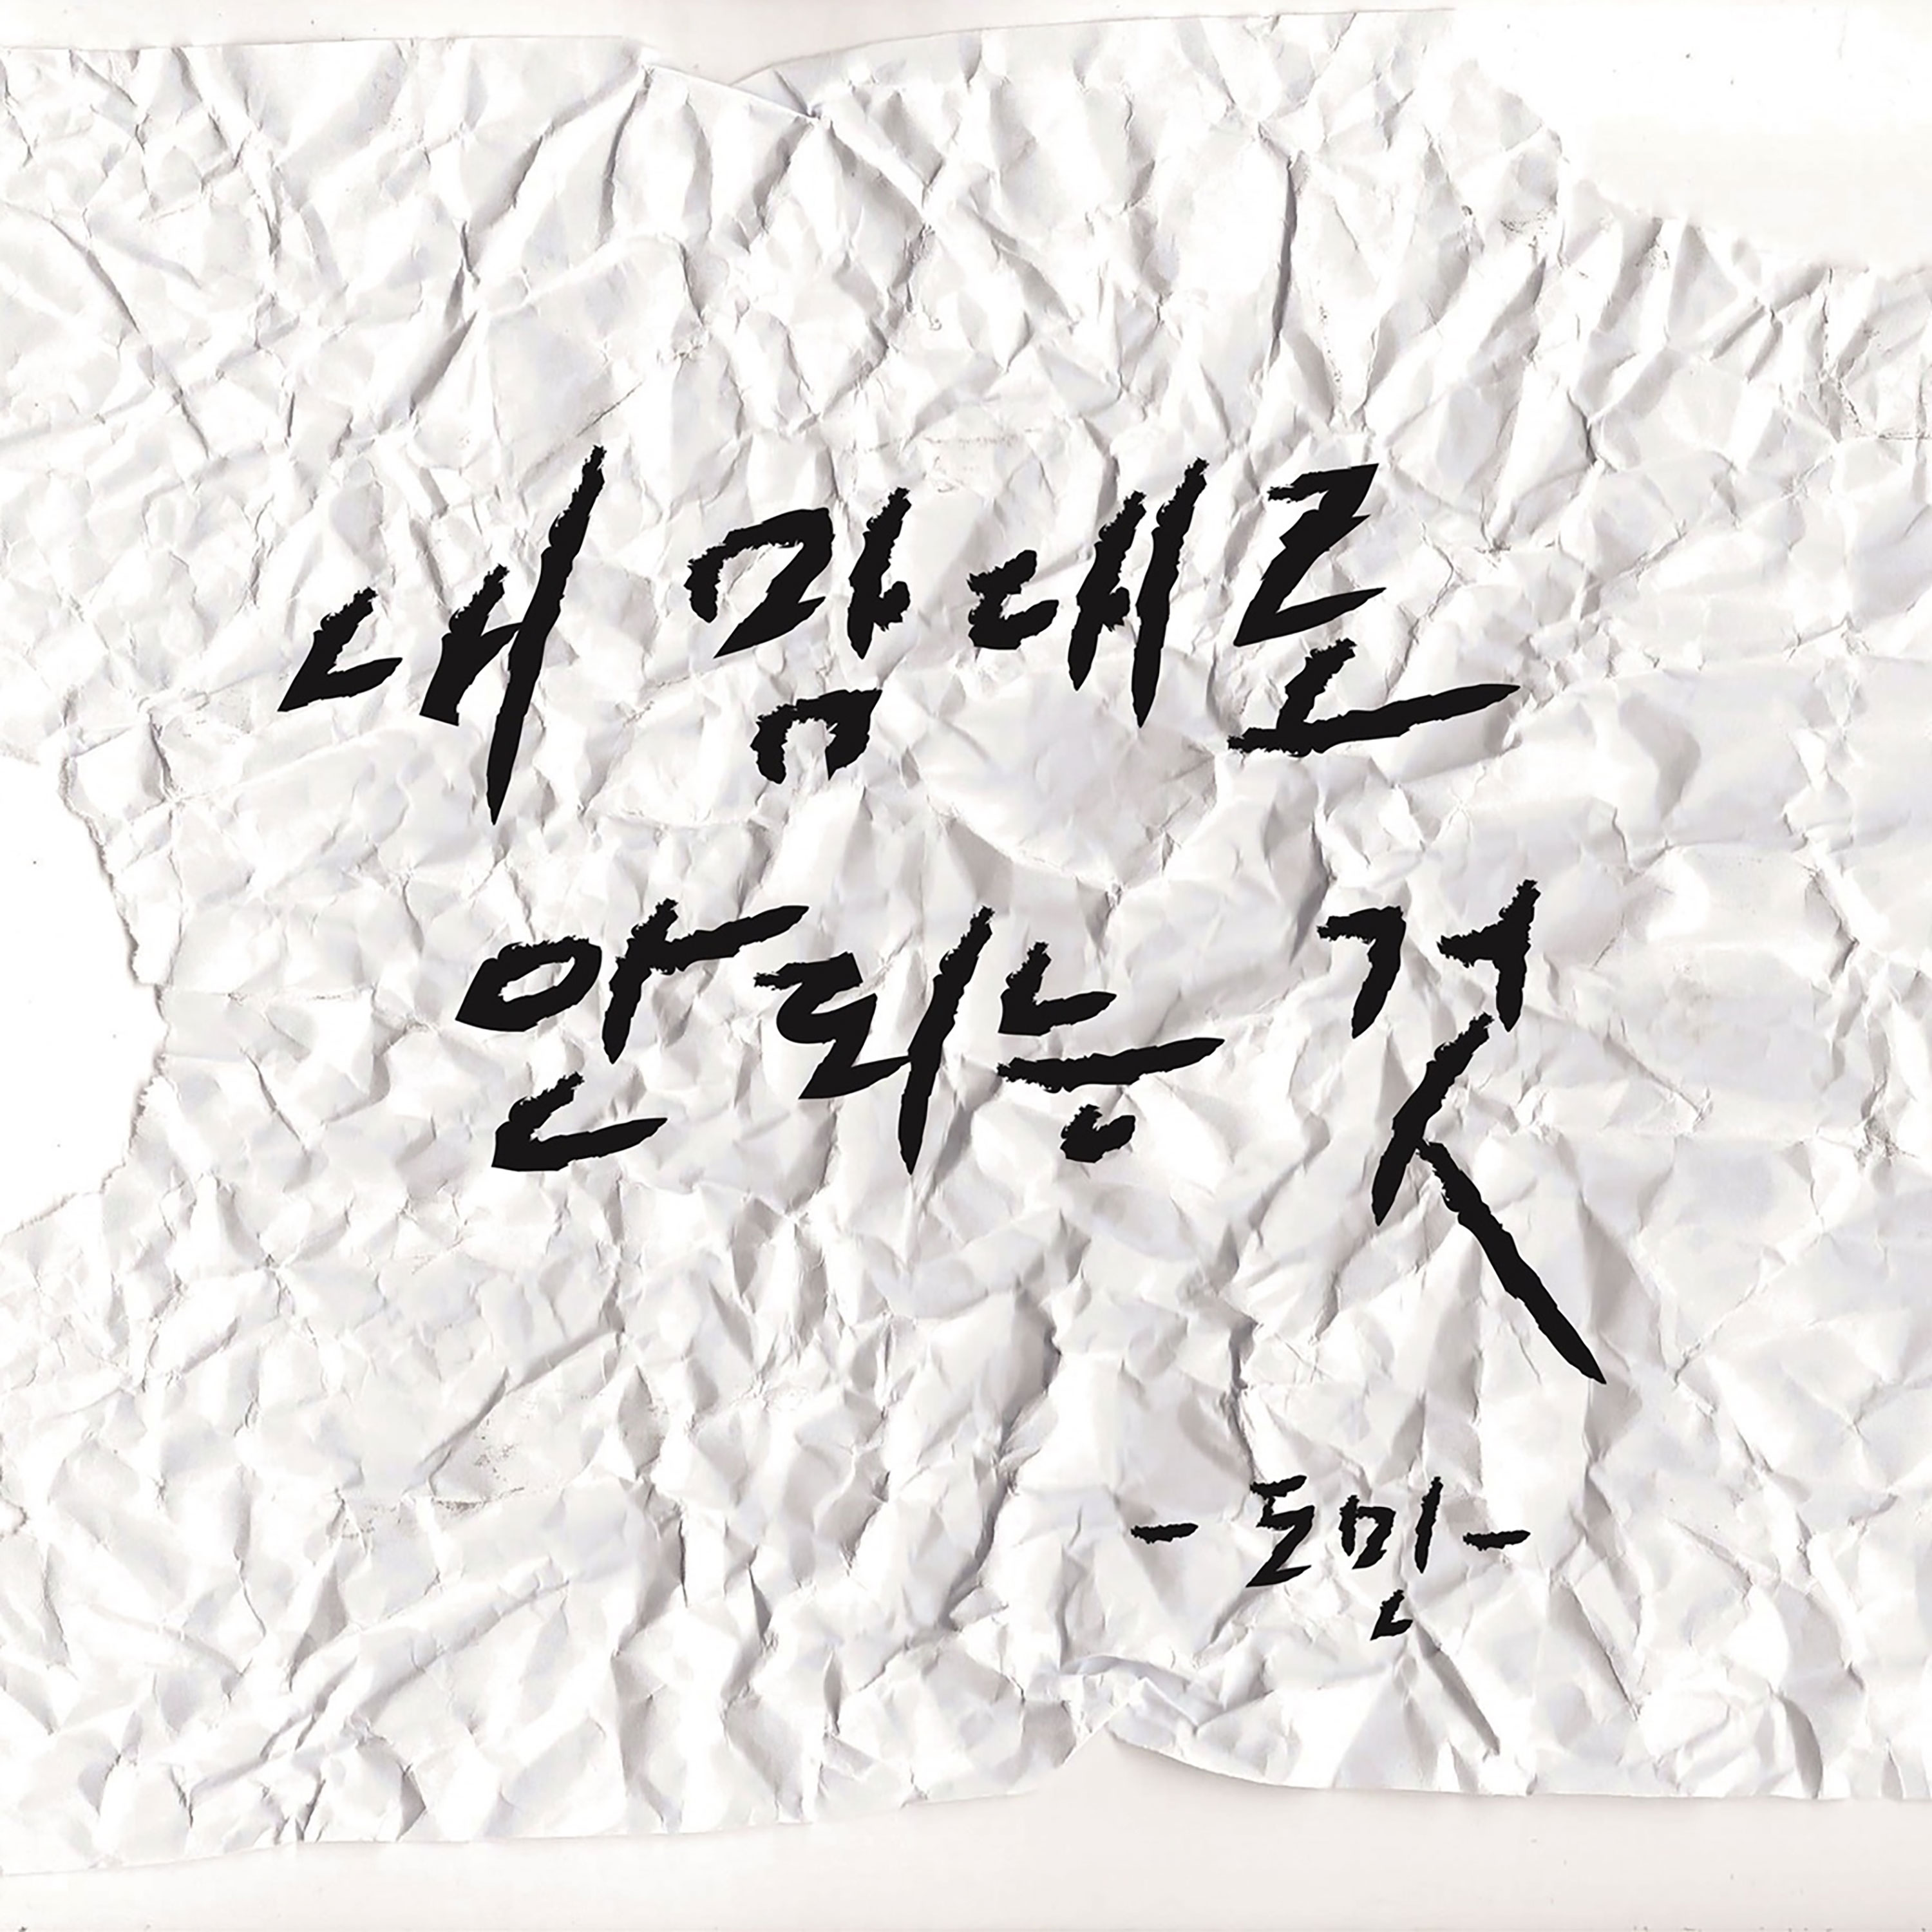 내 맘대로
안되는 것
-도민-